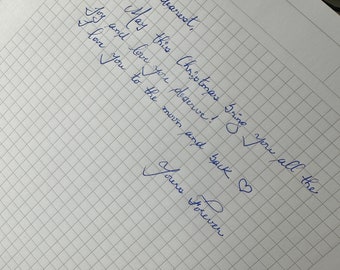 Dearest,
May this Christmas bring you all the
Joy and love you deserve!
I love you to the moon and back ♡
Yours Forever